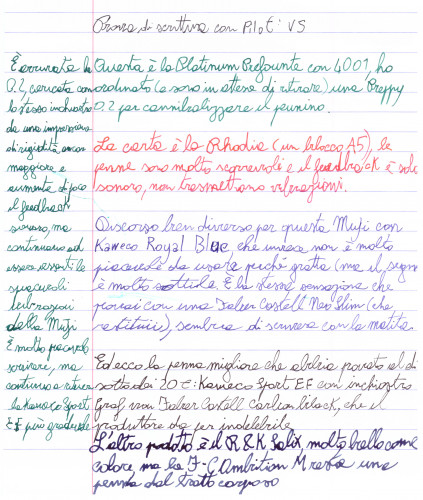 Prova di scrittura con Pilot VS
Questa è la Platinum Prefounte con 4001, ho
ordinato (e sono in attesa di ritirare) una Preppy
0.2 per cannibalizzare il pennino.
La carta è la Rhodia (un blocco A5), le
penne sono molto scorrevoli e il feedback è solo
sonoro, non trasmettono vibrazioni.
Discorso ben diverso per questa Muji con
Kaweco Royal Blue che invece non è molto
piacevole da usare perché gratta (ma il segno
è molto sottile. È la stessa sensazione che
provai con una Faber Castell Neo Slim (che
restituii), sembra di scrivere con la matita.
Ed ecco la penna migliore che abbia provato al di
sotto dei 20 €: Kaweco Sport EF con inchiostro
Graf von Faber Castell Carbon black, che il
produttore da per indelebile
L'altro prodotto è il R&K Salix, molto bello come
colore, ma la F-C Ambition M resta una
penna dal tratto corposo
È arrivata la
0.2, caricata con
lo stesso inchiostro
da una impressione
di rigidità ancora
maggiore e
aumenta di poco
il feedback
sonoro, ma
continuano ad
essere assenti le
spiacevoli
vibrazioni
della Muji
È molto piacevole
scrivere, ma
continuo a ritenere
la Kaweco Sport
EF più gradevole